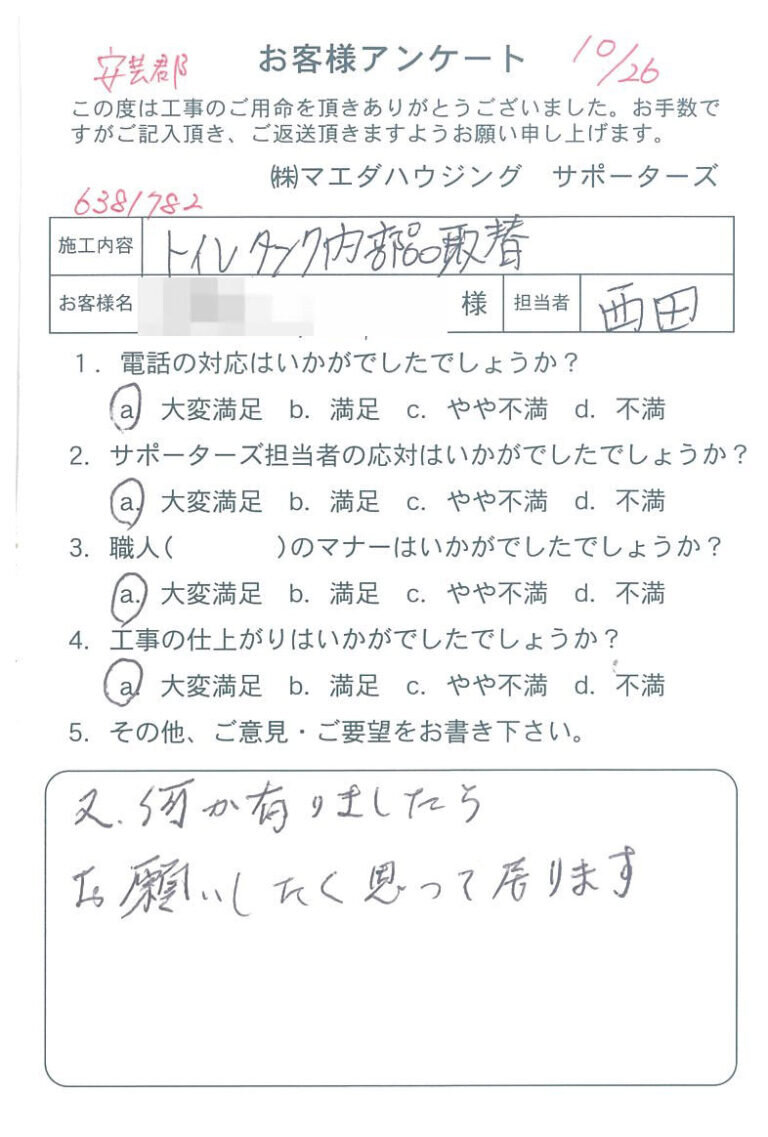 安芸郡 お客様アンケート 10/26
この度は工事のご用命を頂きありがとうございました。お手数で
すがご記入頂き、ご返送頂きますようお願い申し上げます。
㈱マエダハウジング サポーターズ
6381782
施工内容 トイレタンク内部品取替
お客様名 様 担当者 西田
1. 電話の対応はいかがでしたでしょうか?
a 大変満足 b. 満足 c. やや不満 d. 不満
2. サポーターズ担当者の応対はいかがでしたでしょうか?
a. 大変満足 b. 満足 c. やや不満 d. 不満
3. 職人( )のマナーはいかがでしたでしょうか?
a. 大変満足 b. 満足 c. やや不満 d. 不満
4. 工事の仕上がりはいかがでしたでしょうか?
a. 大変満足 b. 満足 c. やや不満 d. 不満
5. その他、ご意見・ご要望をお書き下さい。
又、何か有りましたら
お願いしたく思って居ります